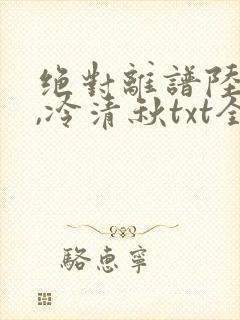 绝對離譜陸
,冷清秋txt全
駱惠寧